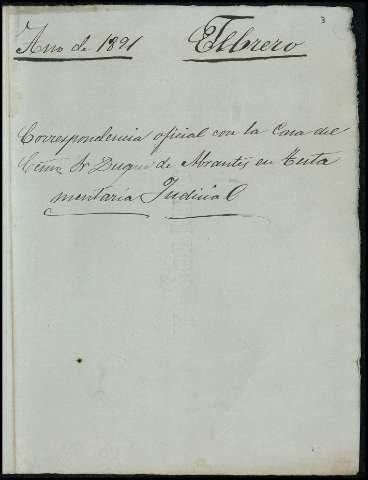 3
Año de 1891 Febrero
Correspondencia oficial con la Casa del
Exmo Sr Duque de Abrantes en Testa
mentaría Judicial